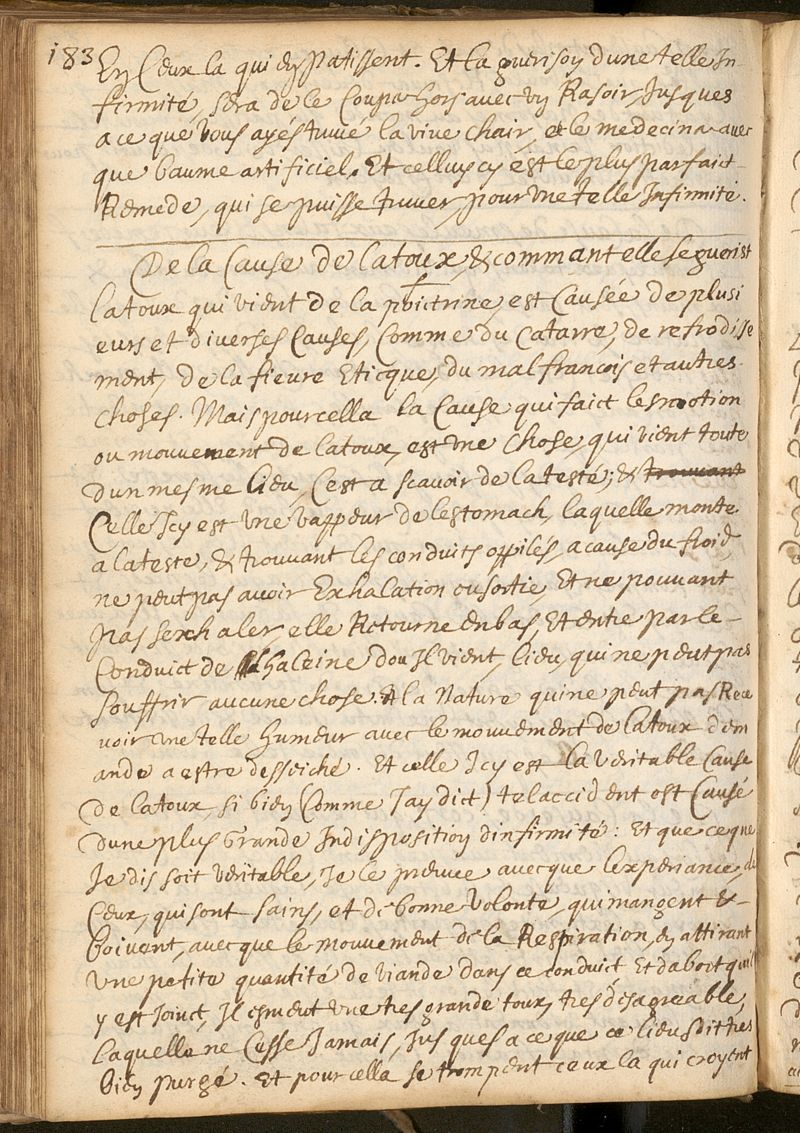 183 En Ceux la qui en patissent. Et la guerison dune telle In-
firmité, sera de le Couper hors avec un Rasoir, Jusques
a ce que vous ayés truvé la vive chair, et le medeciner avec
que baume artificiel. Et celluy cy ést le plus parfait
Remede, qui se puisse truver, pour une telle Infirmité.
De la Cause de la toux, & commant elle se guerist
La toux qui vient de la poictrine, est Causée de plusi
eurs et diverses Causes, Comme du Catarre, de refrodisse
ment, de la fieure Eticque, du mal francois et autres
choses. Mais pour cella la Cause qui faict lesmotion
ou mouuement de la toux, est une chose, qui vient toute
dun mesme lieu, Cest a scavoir de la testé; & trouvant
Celle Icy est une vappeur de lestomach, laquelle monte
a la teste, & trouvant les conduits oppilés, a cause du froid
ne peut pas avoir Exhalation ou sortie, Et ne pouvant
pas sexhaler, elle Retourne en bas, Et entre par le
Conduict de lhaleine dou Il vient, lieu, qui ne peut pas
souffrir aucune chose. Et la Nature qui ne peut pas Rece
voir une telle humeur avec le mouuement de la toux dem
ande a estre desseiché. Et celle Icy est la veritable Cause
de la toux, si bien (Comme Jay dict) tel accident est Causé
dune plus Grande Indisposition dinfirmité: Et que ce que
Je dis soit veritable, Je le preuve avecque lexperiance, de
Ceux, qui sont sains, et de bonne volonte, qui mangent &
boivent, avecque le mouuement de la Respiration, en attirant
une petite quantité de viande dans ce conduict, Et dabort quil
y est Joinct, Il esmeut une tres grande toux, tres desagreable,
laquelle ne Cesse Jamais, Jusques a ce que ce lieu soit tres
bien purgé. Et pour cella se trompent ceux la qui croyent